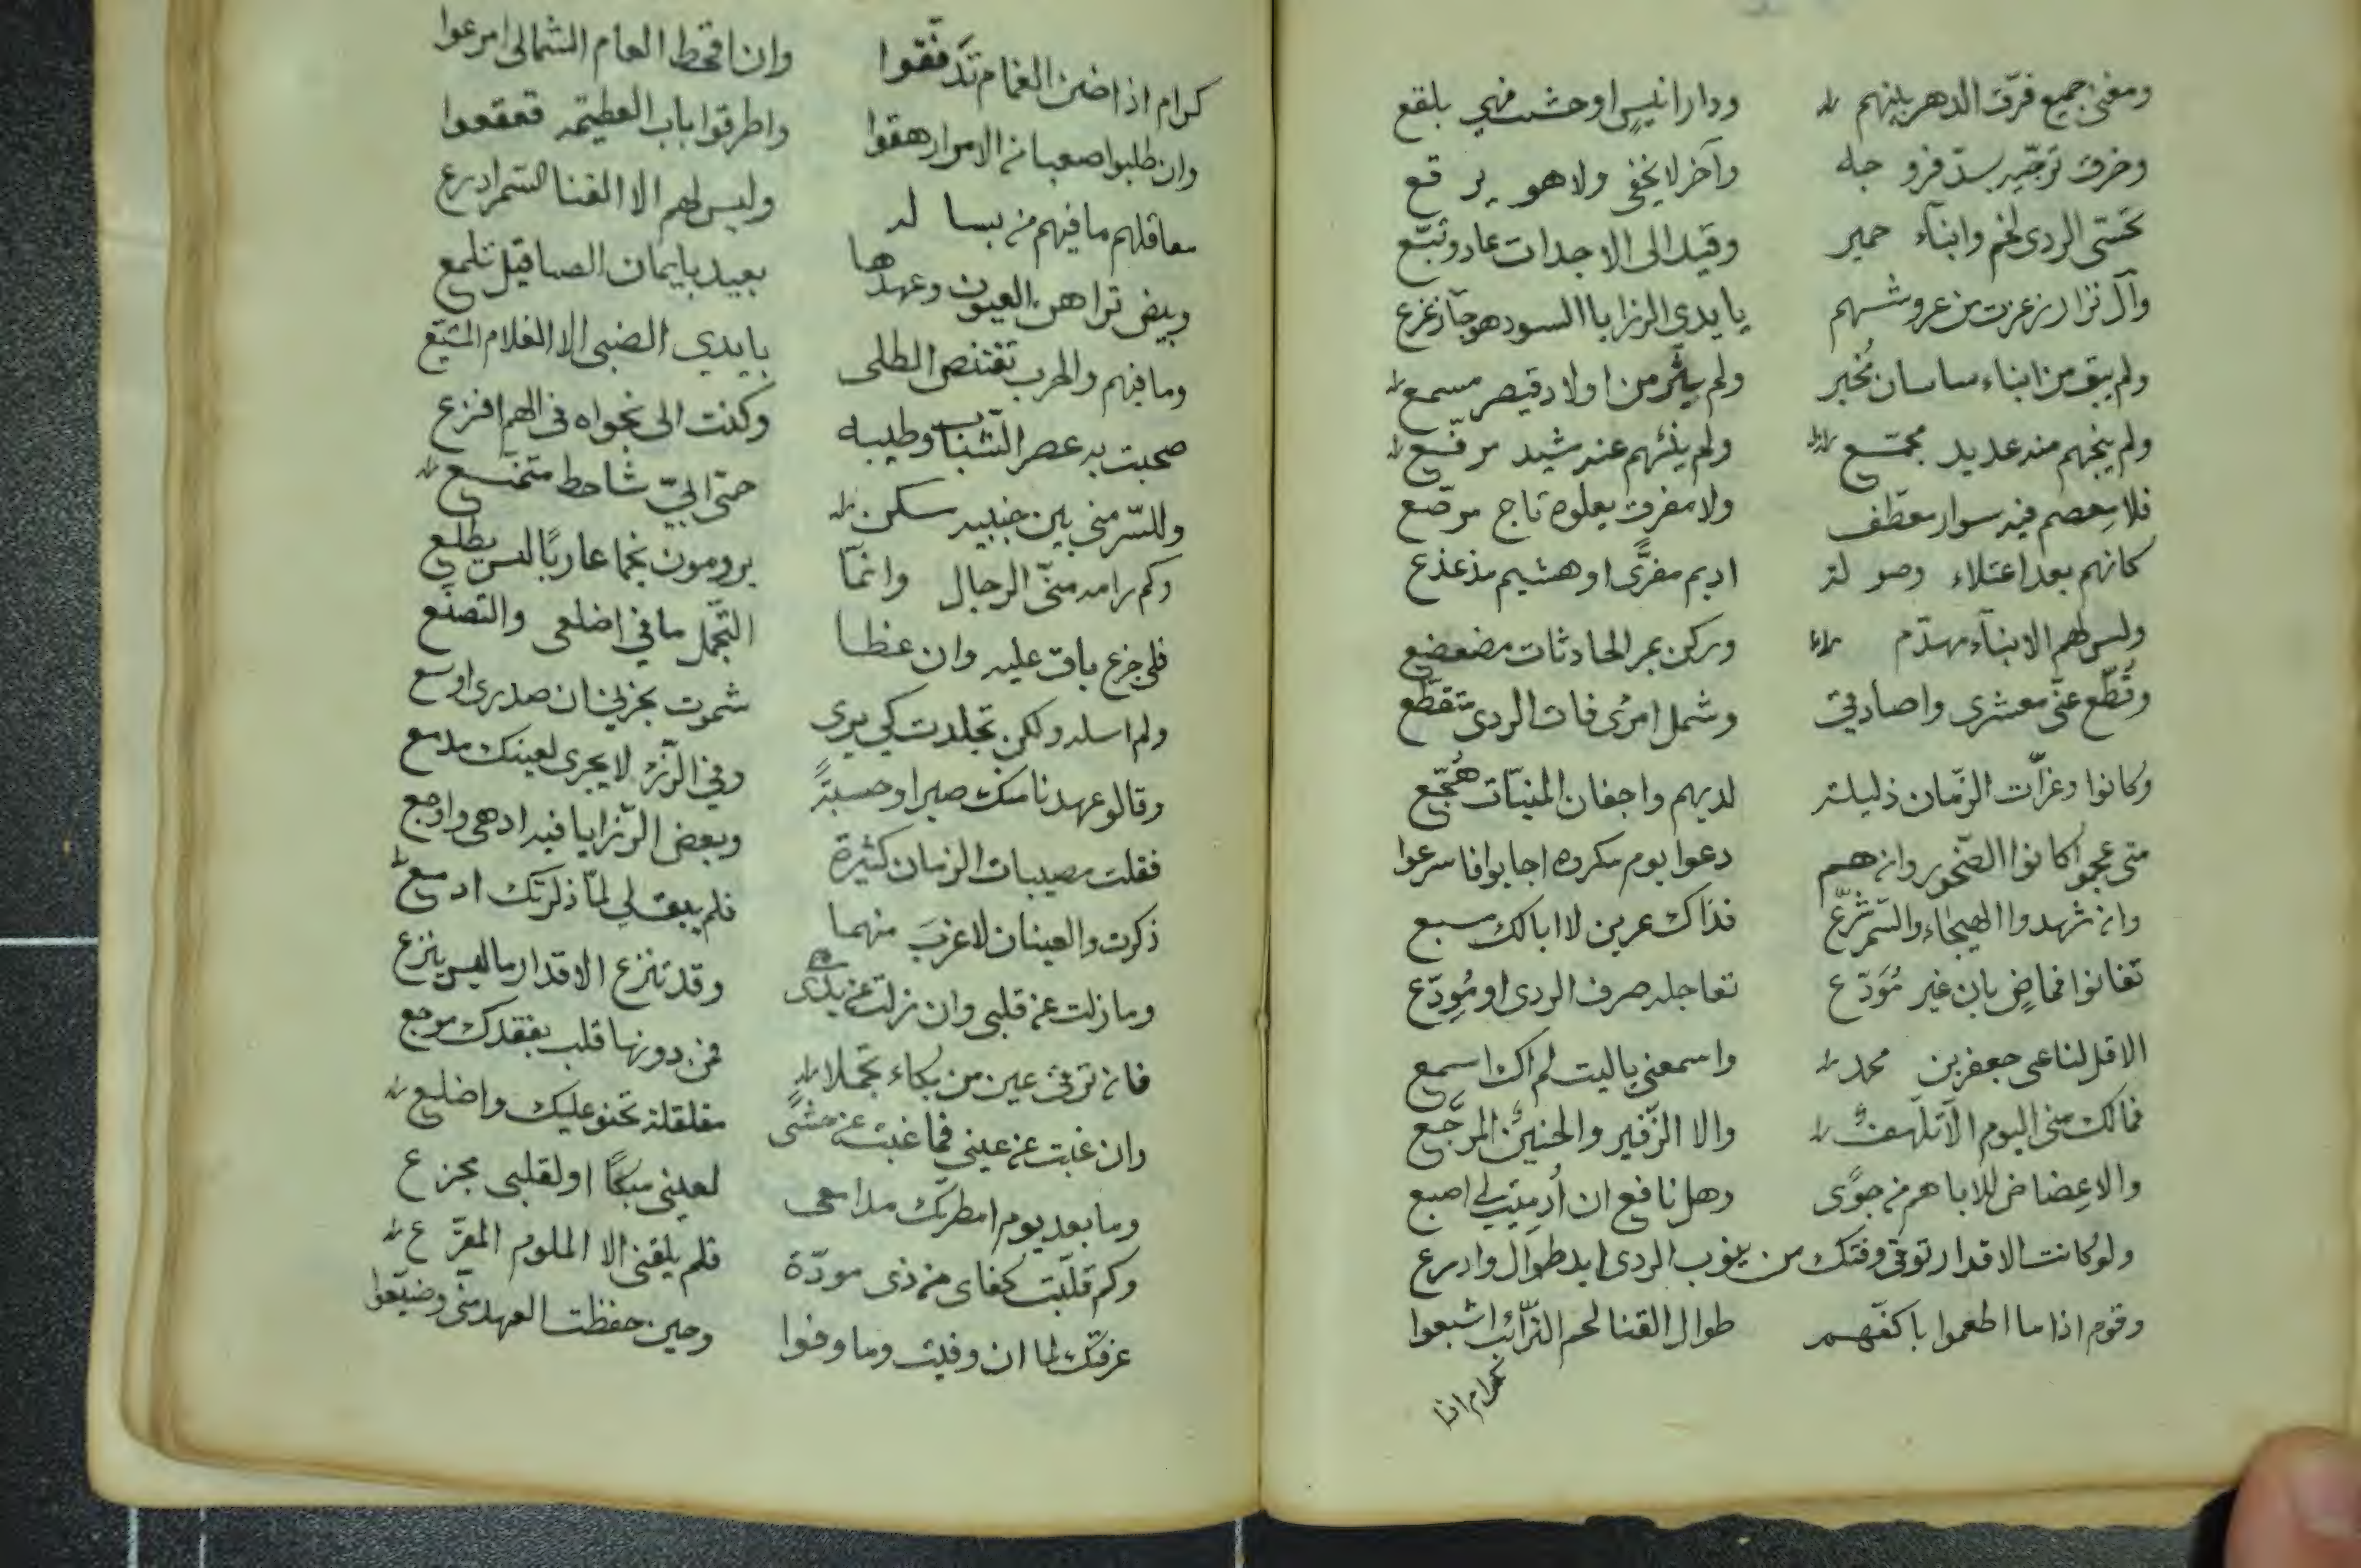 ومغنى جميع فرق الدهر بينهم ودار انيس اوحشت فهي بلقع
وخرق ترجيه بسد فروجه وآخر لا يخفى ولا هو يرقع
تحسّى الردى لخم وابناء حمير وقيد الى الاجداث عاد وتبّع
وآل نزار زعزعت من عروشهم بايدى الرزايا السود هوجآء زعزع
ولم يبق من ابناء ساسان مُخبر ولم يثر من اولاد قيصر مسمع
ولم ينجهم منه عديد مجمّع ولم ينئهم عنه مشيد مرفّع
فلا مِعصم فيه سوار معطّف ولا مفرق يعلوه تاج مرصّع
كانهم بعد اعتلاء وصولة اديم مفرًّى او هشيم مذعذع
وليس لهم الا بنآء مهدّم وركن بمر الحادثات مضعضع
وقُطّع عنّى معشرى واصادقى وشمل امرئ فات الردى متقطّع
وكانوا وعزّات الزّمان ذليلة لديهم واجفان المنيّات هُجّع
متى عجموا كانوا الصّخور وان هم دعوا يوم مكروه اجابوا فاسرعوا
وان شهدوا الهيجاء والسّمر شرّع فذاك عرين لا ابا لك مسبع
تفانوا فماضٍ بان غير مُوَدّع تعاجله صرف الردى او مُودّع
الا قل لناعى جعفر بن محمد واسمعنى ياليت لم اك اسمع
فمالك منى اليوم الّا تلهّفٌ والا الزّفير والحنين المرجّع
والا عِضاض للاباهم من جوًى وهل نافع ان أُدميت لي اصبع
ولو كانت الاقدار توقى وقتك من نيوب الردى ايد طوال وادرع
وقوم اذا ما اطعموا باكفّهم طوال القنا لحم التّرائب اشبعوا
كرام اذا
كرام اذا ضن الغمام تَدفّقوا وان اقحط العام الشمالى امرعوا
وان طلبوا صعبا من الامر ارهقوا واطرقوا باب العظيمة قعقعوا
معاقلهم ما فيهم من بسالة وليس لهم الا القنا السمر ادرع
وبيض تراهن العيون وعهدها بعيد بايمان الصياقل تلمع
وما فيهم والحرب تقتنص الطلى بايدى الضبى الا الغلام المشيّع
صحبت به عصر الشّباب وطيبه وكنت الى نجواه في الهم افزع
وللسّر منى بين جنبيه مسكن حمّى ابيّ شاحط متمنّع
وكم رامه منّى الرجال وانمّا يرومون نجما عاربًا ليس يطلع
فلى جزع باق عليه وان غطا التّجمّل ما في اضلعى والتصنّع
ولم اسله ولكن تجلدت كي يرى شموت بحزني ان صدرى اوسع
وقالو عهدنا منك صبرا وحسبةً وفي الرّزء لا يجرى لعينك مدمع
فقلت مصيبات الزمان كثيرة وبعض الرّزايا فيه ادهى واوجع
ذكرت والعينان لا غربَ منهما فلم يبق لي لمّا ذكرتك ادمع
وما زلت عن قلبى وان زلت عن يدى وقد تنزع الاقدار ما ليس ينزع
فان ترقى عين من بكاء تجملا فمن دونها قلب بفقدك موجع
وان غبت عن عيني فما غبت عن حشًى مقلقلة تحنو عليك واضلع
وما بعد يوم امطرتك مدامعى لعينى مبكًا او لقلبى مجزع
وكم قلّبت كفاى من ذى مودّة فلم يلقنى الا الملوم المقرّع
عرفتك لما ان وفيت وما وفوا وحين حفظت العهد منّى وضيّعوا